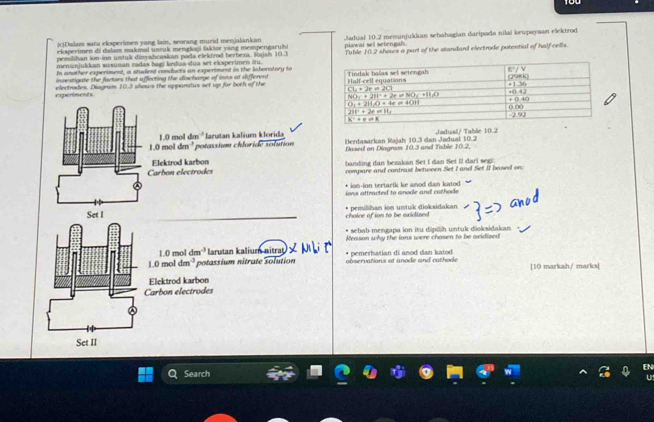 (c)Dalam satu eksperimen yang lain, seorang murid menjalankan
eksperimen di dalam makmal untuk mengkaji faktor yang mempengaruhi
pemilihan ion-ion untuk dinyahcaskan pada elektrod berbeza. Rajah 10.3
menunjukkan susunan radas bagi kedua-dua set eksperimen itu.
In another experiment, a student conducts an experiment in the laboratory to
investigate the factors that affecting the discharge of ions at different
electrodes. Diagram 10.3 shows the apparatus set up for both of the
experiments.
1.0 mol dm⁻³ larutan kalium klorida
1.0 mol dm⁻³ potassium chloride solution
Elektrod karbon
Carbon electrodes
A
Set I
1.0 mol dm⁻³ larutan kalium nitrat
1.0 mol dm⁻³ potassium nitrate solution
Elektrod karbon
Carbon electrodes
A
Set II
Jadual 10.2 menunjukkan sebahagian daripada nilai keupayaan elektrod
piawai sel setengah.
Table 10.2 shows a part of the standard electrode potential of half-cells.
Tindak balas sel setengah
Half-cell equations
E° / V
(298K)
Cl₂ + 2e ⇌ 2Cl⁻ +1.36
NO₃⁻ + 2H⁺ + 2e ⇌ NO₂⁻ + H₂O +0.42
O₂ + 2H₂O + 4e ⇌ 4OH⁻ + 0.40
2H⁺ + 2e ⇌ H₂ 0.00
K⁺ + e ⇌ K -2.92
Jadual/ Table 10.2
Berdasarkan Rajah 10.3 dan Jadual 10.2
Based on Diagram 10.3 and Table 10.2,
banding dan bezakan Set I dan Set II dari segi:
compare and contrast between Set I and Set II based on:
• ion-ion tertarik ke anod dan katod
ions attracted to anode and cathode
• pemilihan ion untuk dioksidakan } => anod
choice of ion to be oxidised
• sebab mengapa ion itu dipilih untuk dioksidakan
Reason why the ions were chosen to be oxidized
• pemerhatian di anod dan katod
observations at anode and cathode
[10 markah/ marks]
Search